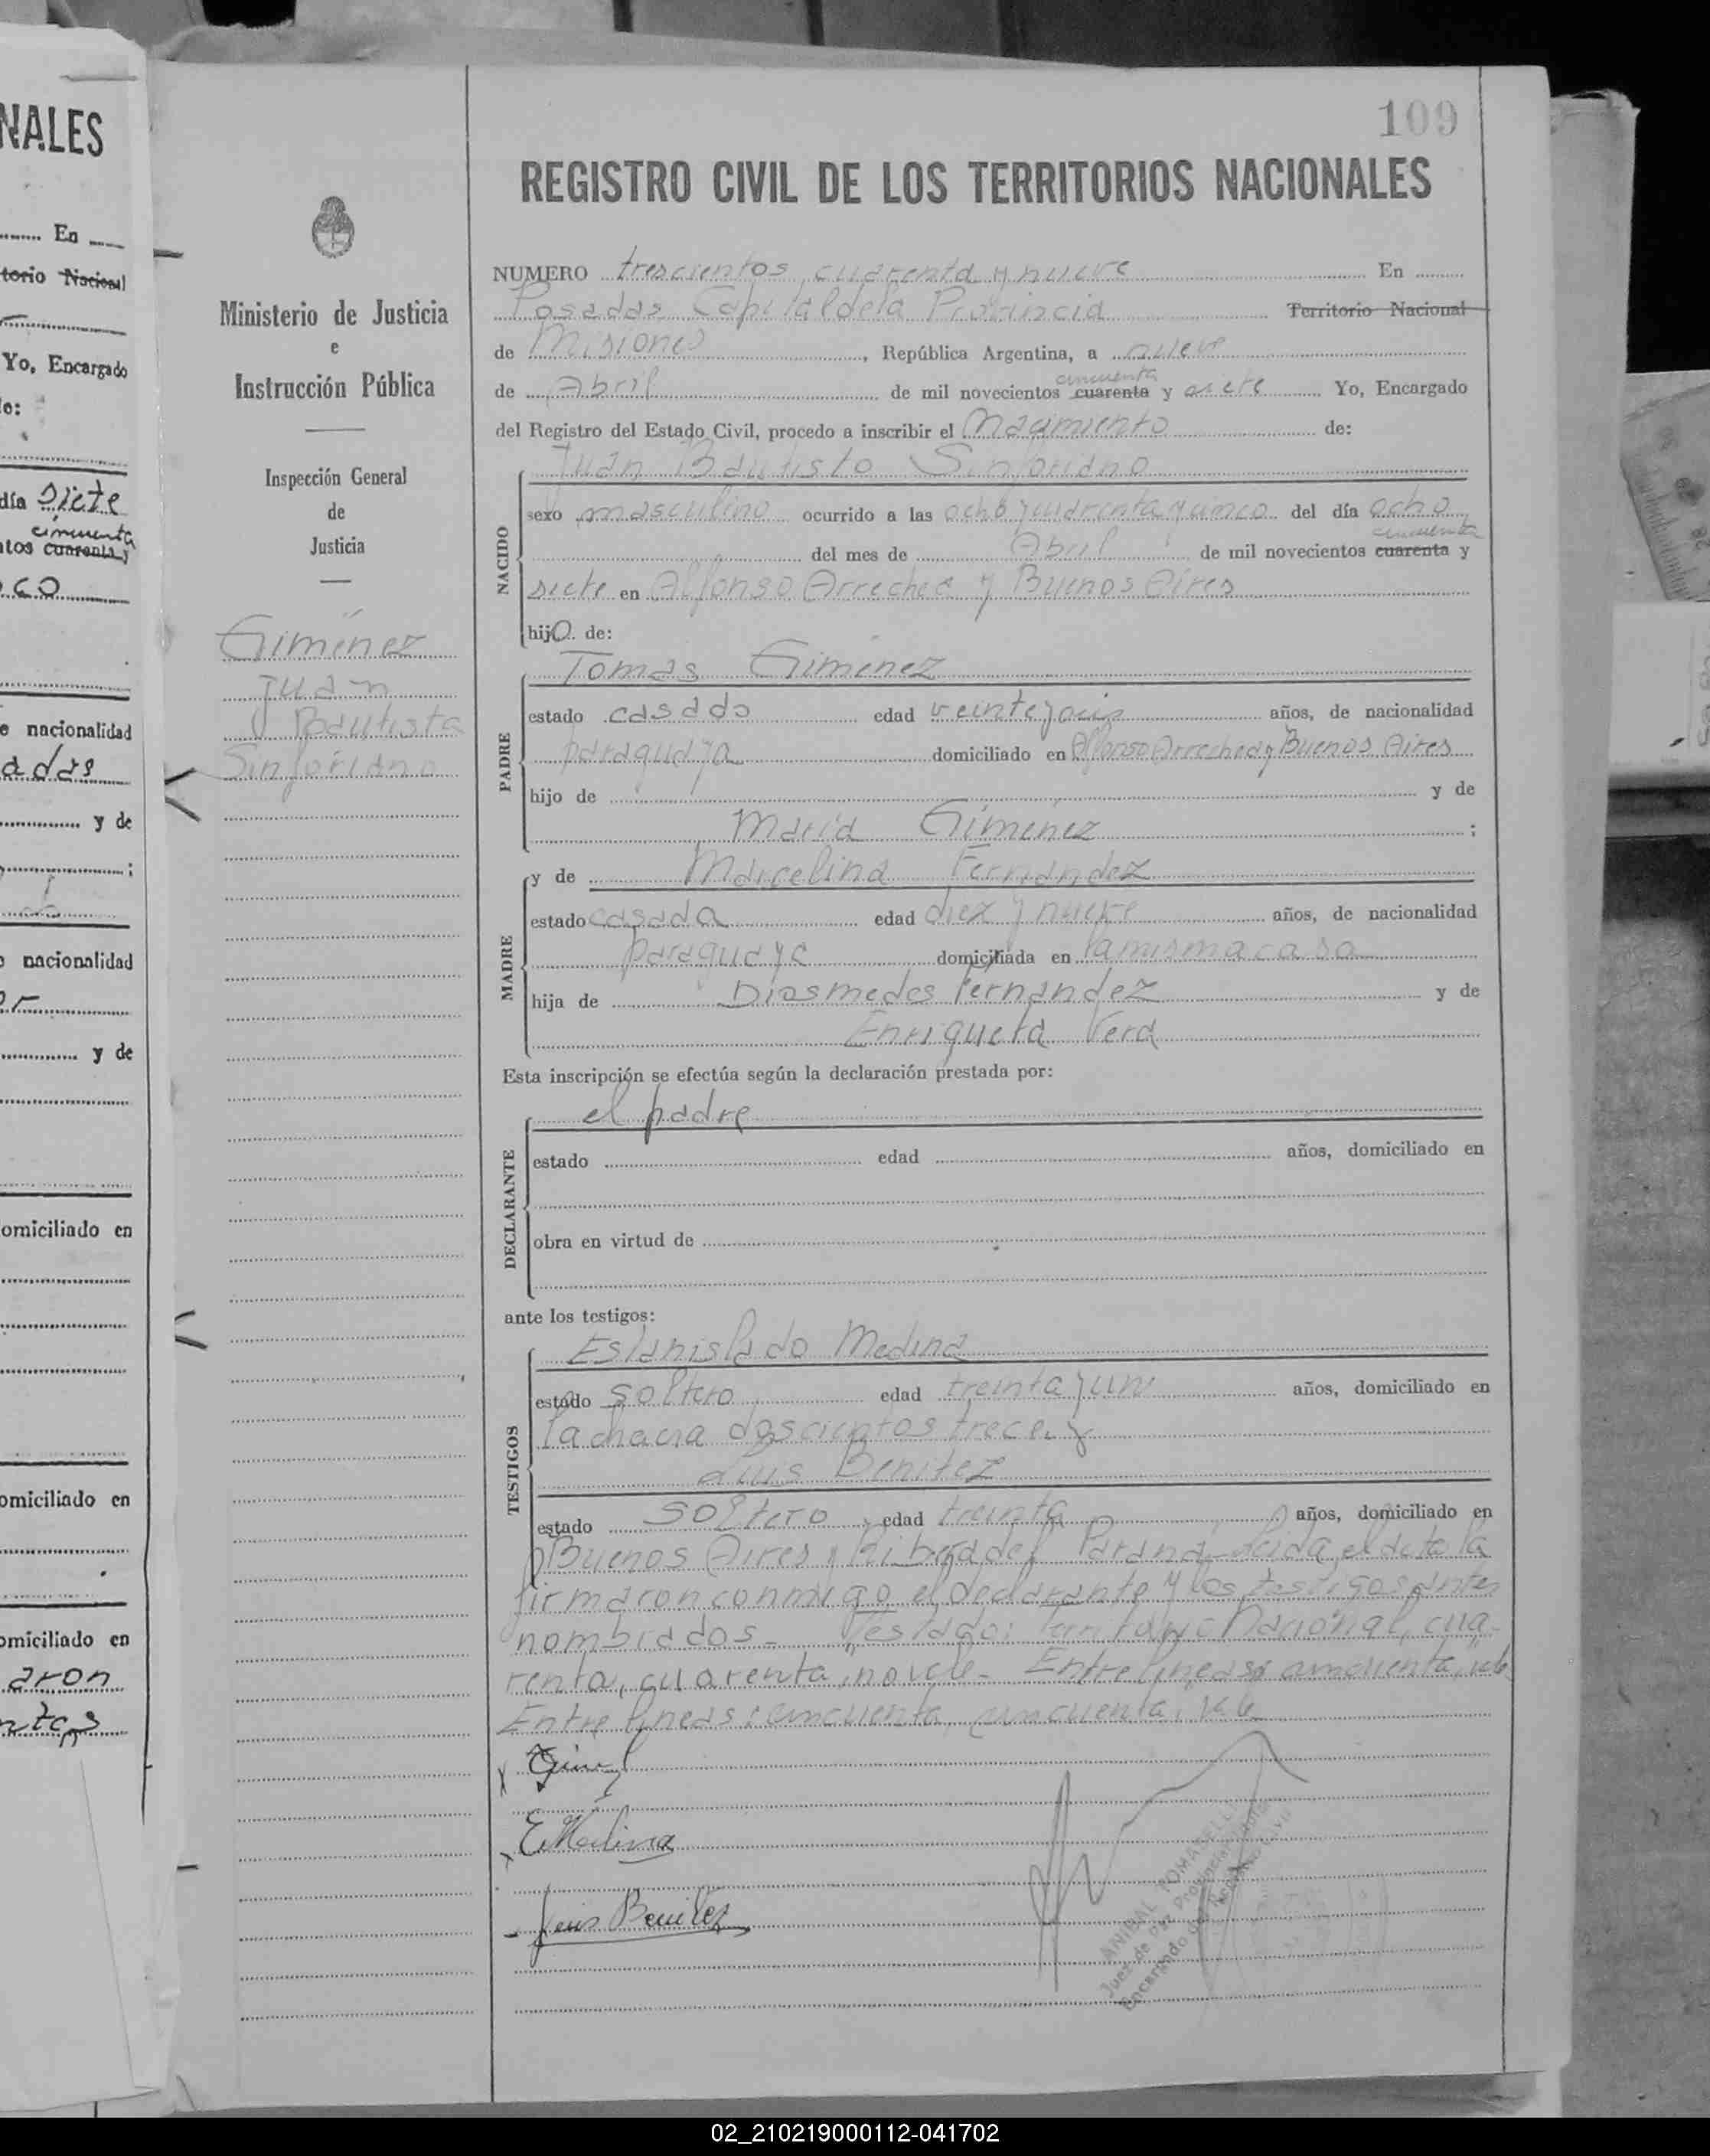 NALES
En
torio Nacional
Yo, Encargado
o:
día siete
cincuenta
tos cuarenta y
co
e nacionalidad
adas
y de
;
o nacionalidad
y de
omiciliado en
omiciliado en
omiciliado en
aron
Ministerio de Justicia
e
Instrucción Pública
Inspección General
de
Justicia
Gimenez
Juan
Bautista
Sinforiano
109
REGISTRO CIVIL DE LOS TERRITORIOS NACIONALES
NUMERO trescientos cuarenta y nueve En
Posadas Capital de la Provincia Territorio Nacional
de Misiones, República Argentina, a nueve
cincuenta
de Abril de mil novecientos cuarenta y siete Yo, Encargado
del Registro del Estado Civil, procedo a inscribir el Nacimiento de:
Juan Bautisto Sinforiano
NACIDO
sexo masculino ocurrido a las ocho y cuarenta y cinco del día ocho
cincuenta
del mes de Abril de mil novecientos cuarenta y
siete en Alfonso Arrechea y Buenos Aires
hijo de:
PADRE
Tomas Gimenez
estado casado edad veinte y años, de nacionalidad
paraguaya domiciliado en Alfonso Arrechea y Buenos Aires
hijo de y de
Maria Gimenez ;
MADRE
y de Marcelina Fernandez
estado casada edad diez y nueve años, de nacionalidad
paraguaya domiciliada en la misma casa
hija de Diosmedes Fernandez y de
Enriqueta Vera
Esta inscripción se efectúa según la declaración prestada por:
DECLARANTE
el padre
estado edad años, domiciliado en
obra en virtud de
ante los testigos:
TESTIGOS
Estanislado Medina
estado soltero edad treinta y un años, domiciliado en
la chacra doscientos trece y
Luis Benitez
estado soltero edad treinta años, domiciliado en
Buenos Aires y Ribera del Paraná Leida el acto la
firmaron conmigo el declarante y los testigos antes
nombrados. Testado: Territorio Nacional, cua-
renta, cuarenta, no vale. Entre lineas: cincuenta, vale
Entre lineas: cincuenta, cincuenta, vale
E Medina
Luis Benitez
ANIBAL
Juez de Paz Provincial
Encargado del Registro Civil
02_210219000112-041702